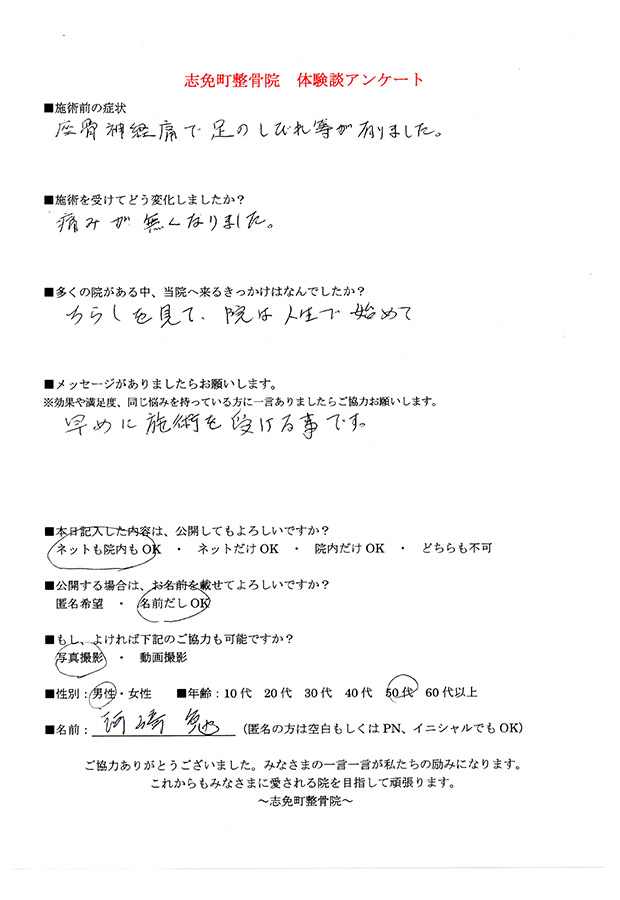 志免町整骨院　体験談アンケート
■施術前の症状
座骨神経痛で足のしびれ等が有りました。
■施術を受けてどう変化しましたか？
痛みが無くなりました。
■多くの院がある中、当院へ来るきっかけはなんでしたか？
ちらしを見て、院は人生で始めて
■メッセージがありましたらお願いします。
※効果や満足度、同じ悩みを持っている方に一言ありましたらご協力お願いします。
早めに施術を受ける事です。
■本日記入した内容は、公開してもよろしいですか？
ネットも院内もOK　・　ネットだけOK　・　院内だけOK　・　どちらも不可
■公開する場合は、お名前を載せてよろしいですか？
匿名希望　・　名前だしOK
■もし、よければ下記のご協力も可能ですか？
写真撮影　・　動画撮影
■性別：男性・女性　　■年齢：10代　20代　30代　40代　50代　60代以上
■名前：　（匿名の方は空白もしくはPN、イニシャルでもOK）
ご協力ありがとうございました。みなさまの一言一言が私たちの励みになります。
これからもみなさまに愛される院を目指して頑張ります。
～志免町整骨院～